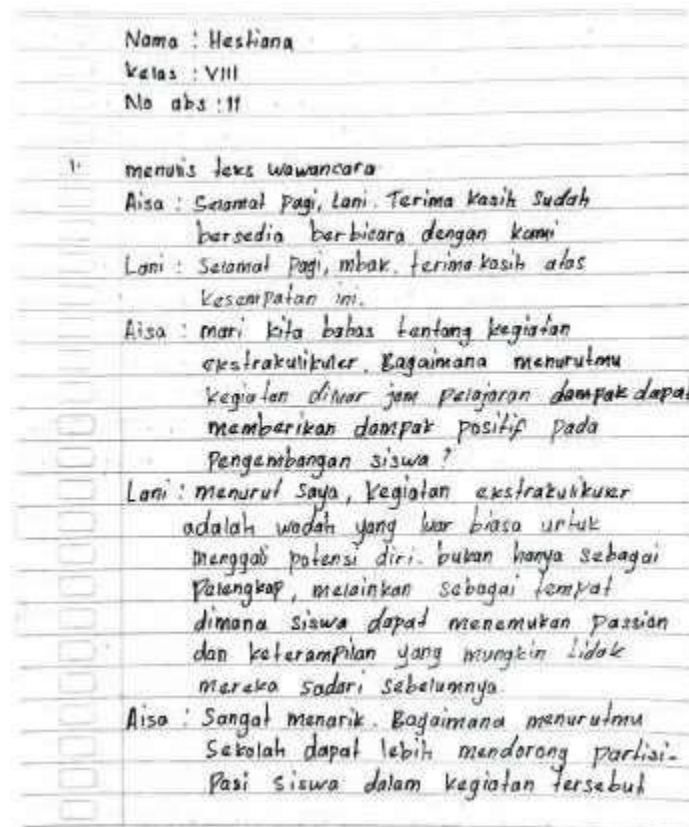 Nama : Hestiana
Kelas : VIII
No abs : 11
1. menulis teks wawancara
Aisa : Selamat Pagi, Lani. Terima kasih sudah
bersedia berbicara dengan kami
Lani : Selamat Pagi, mbak. terima kasih atas
kesempatan ini.
Aisa : mari kita bahas tentang kegiatan
ekstrakulikuler. Bagaimana menurutmu
kegiatan diluar jam pelajaran dampak dapat
memberikan dampak positif pada
Pengembangan siswa?
Lani : menurut saya, kegiatan ekstrakulikuler
adalah wadah yang luar biasa untuk
menggali potensi diri. bukan hanya sebagai
Pelengkap, melainkan sebagai tempat
dimana siswa dapat menemukan Passion
dan keterampilan yang mungkin tidak
mereka sadari sebelumnya.
Aisa : Sangat menarik. Bagaimana menurutmu
Sekolah dapat lebih mendorong Partisi-
Pasi siswa dalam kegiatan tersebut